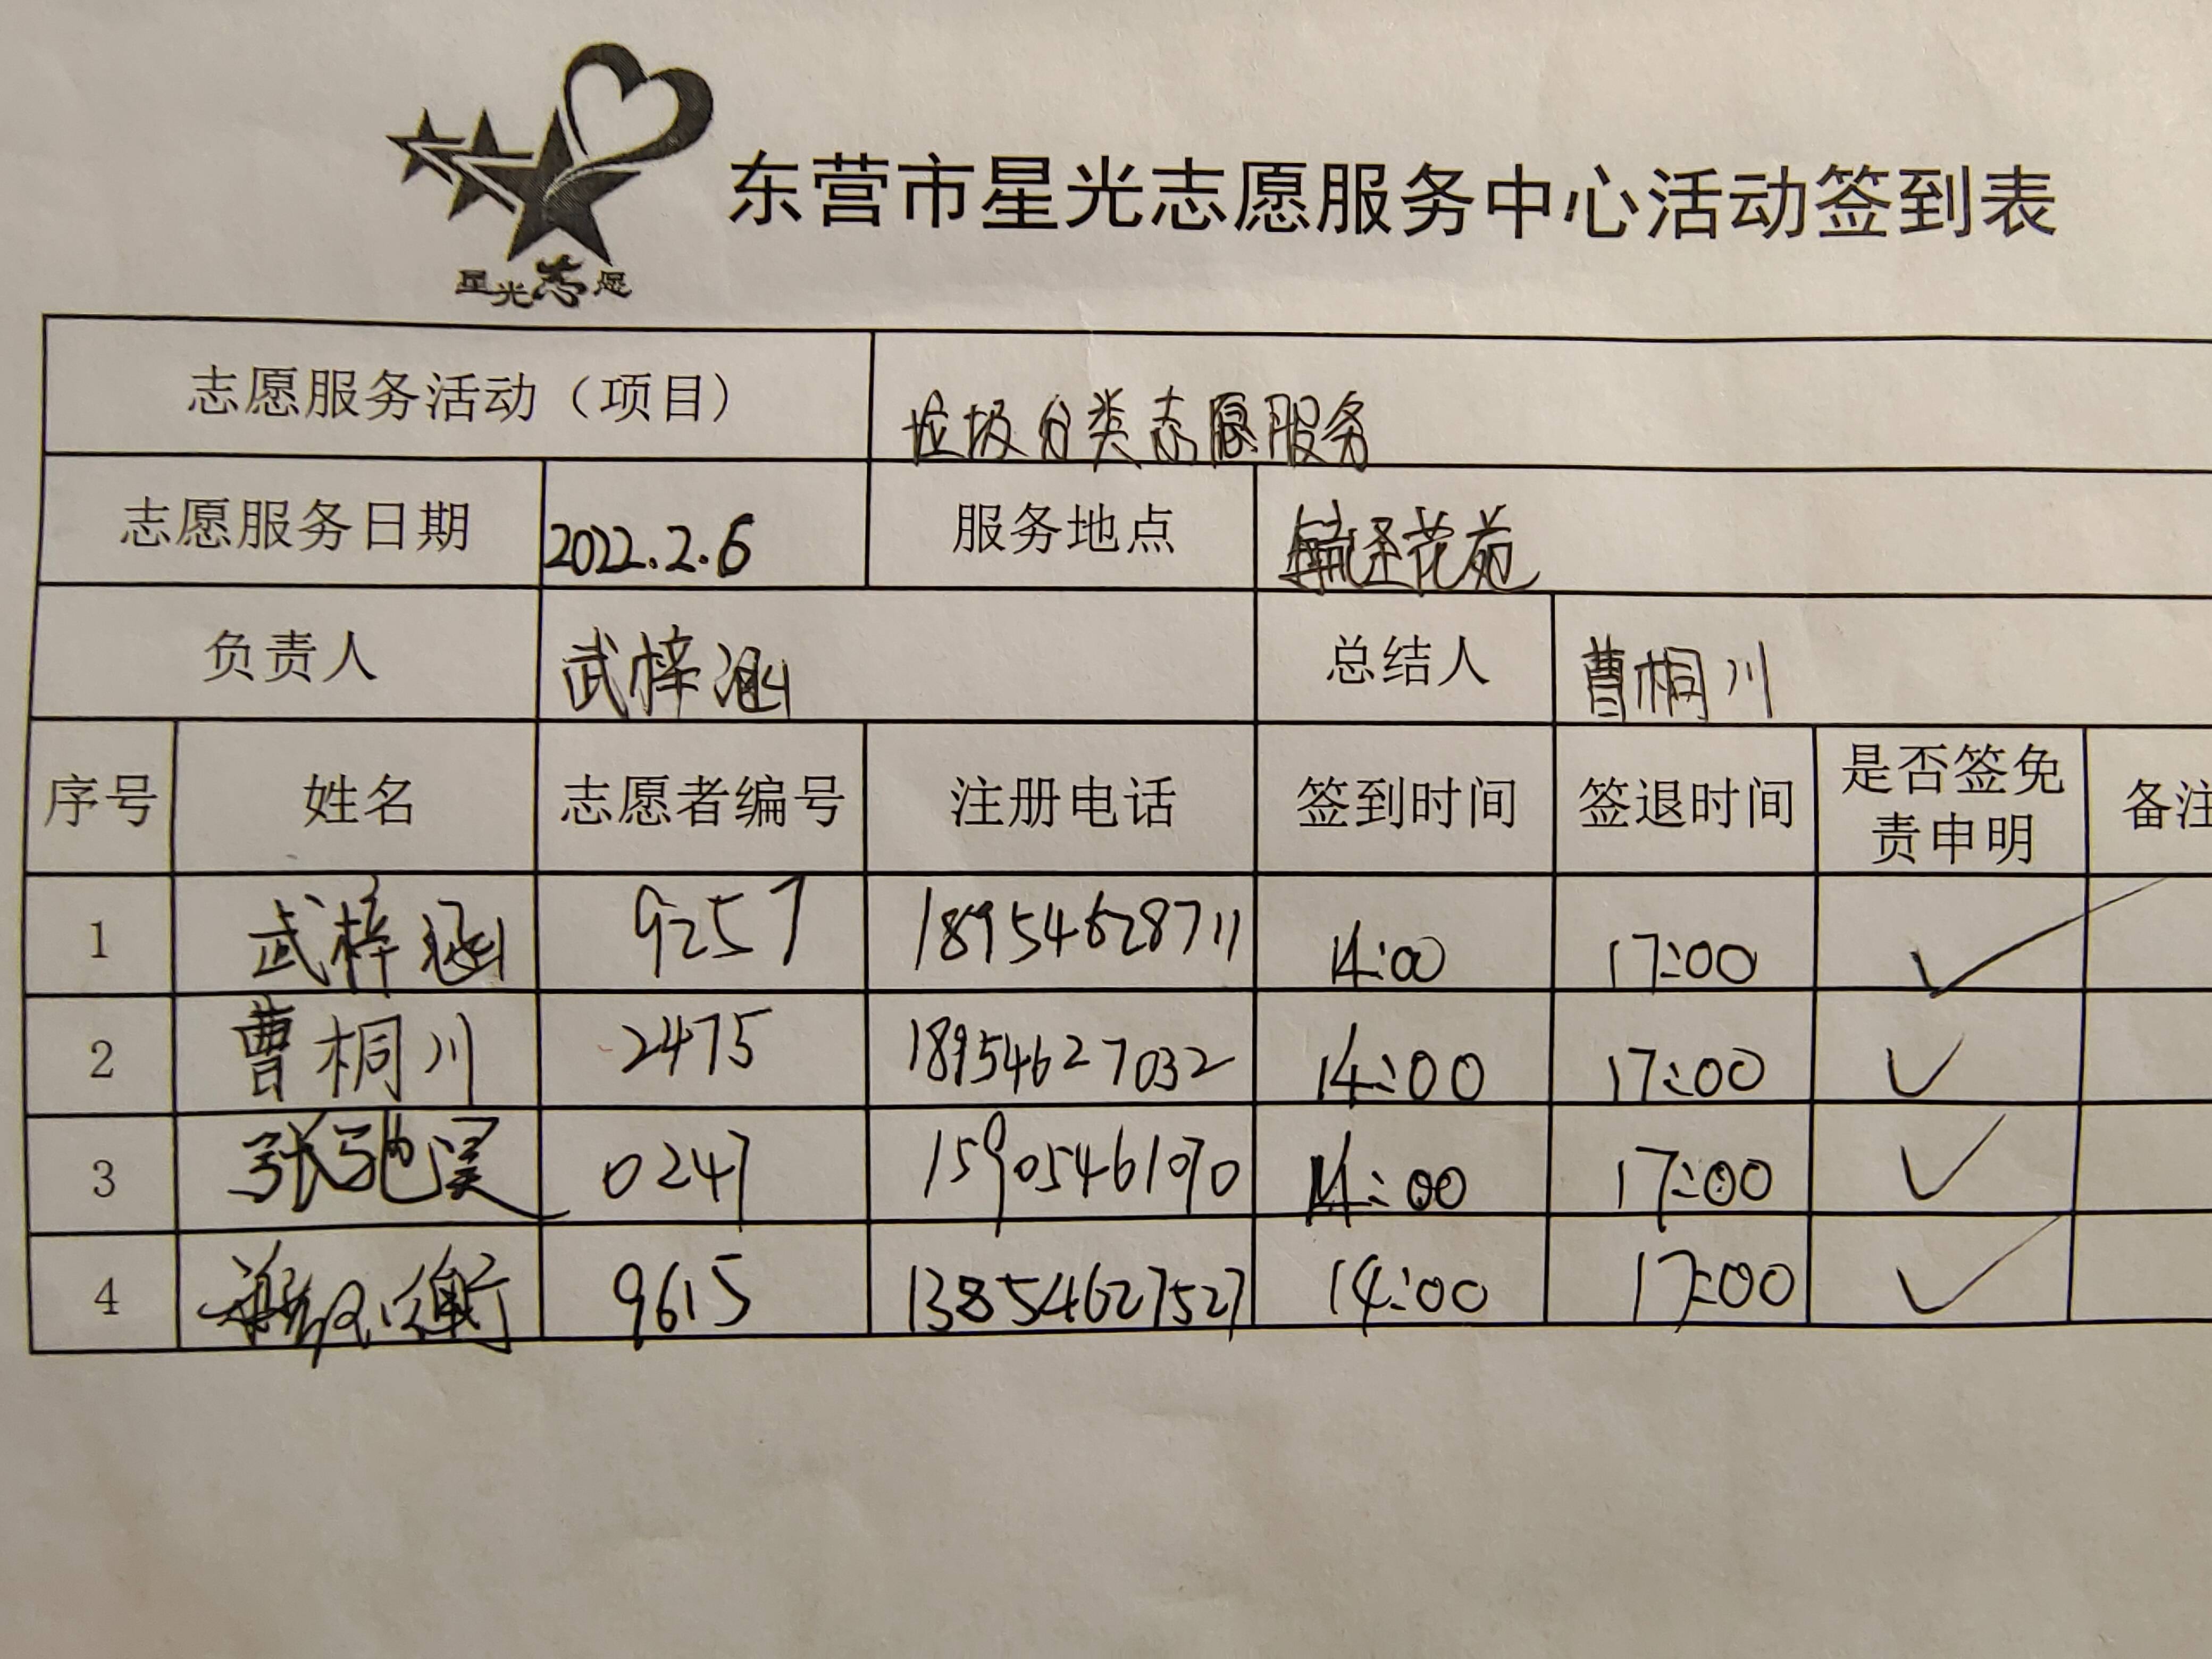 东营市星光志愿服务中心活动签到表
星光志愿
志愿服务活动（项目） 垃圾分类志愿服务
志愿服务日期 2022.2.6 服务地点 花苑
负责人 武梓涵 总结人 曹桐川
序号 姓名 志愿者编号 注册电话 签到时间 签退时间 是否签免责申明 备注
1 武梓涵 9257 18954628711 14:00 17:00 ✓
2 曹桐川 2475 18954627032 14:00 17:00 ✓
3 张驰昊 0247 15905461090 14:00 17:00 ✓
4 9615 13854627527 14:00 17:00 ✓